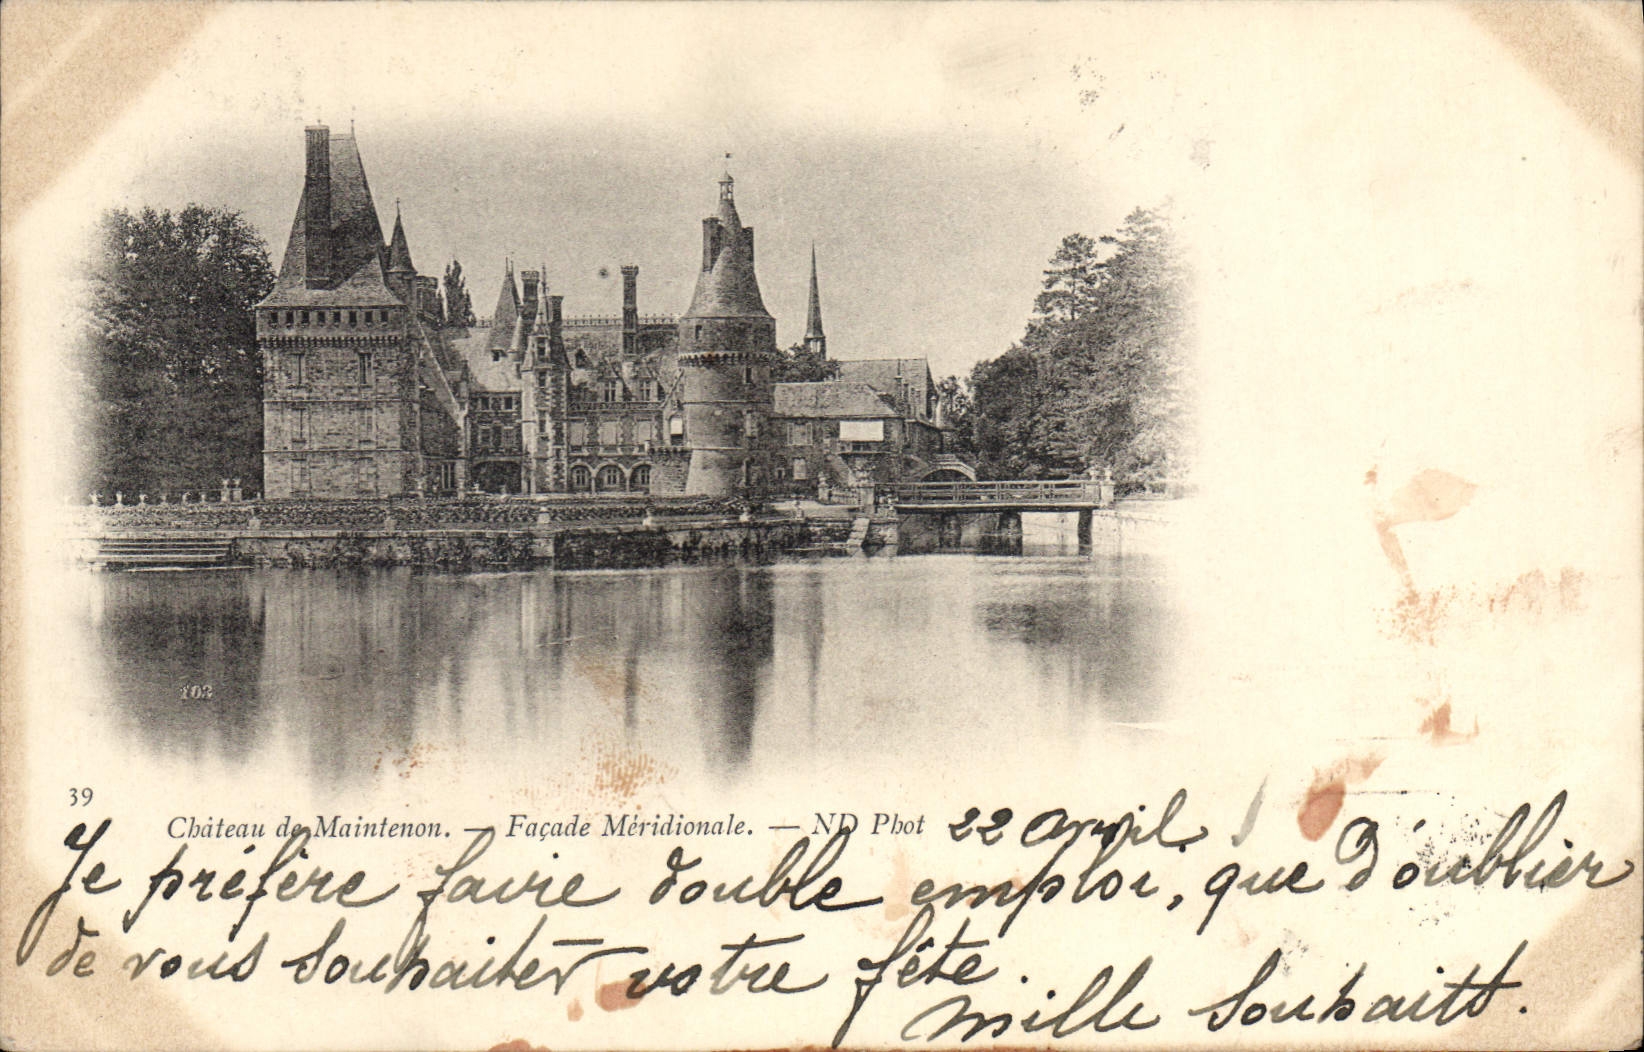 103
39
Château de Maintenon. — Façade Méridionale. — ND Phot
22 avril
Je préfère faire double emploi, que d'oublier
de vous souhaiter votre fête.
Mille souhaits.